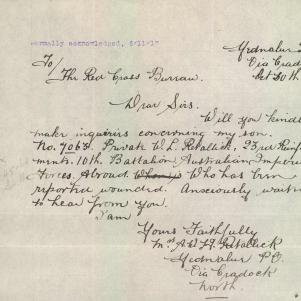 Formally acknowledged, 6/11/17
Yednalue
Via Cradock
Oct 30th
To/
The Red Cross Bureau.
Dear Sirs.
Will you kindly
make inquiries concerning my son.
No. 7068. Private W L. Retallick, 23rd Reinf
ments. 10th. Battalion Australian Imperial
Forces. Abroad. Who has been
reported wounded. Anxiously waiting
to hear from you.
I am
Yours Faithfully
Retallick
Yednalue P.O.
Via Cradock
North.